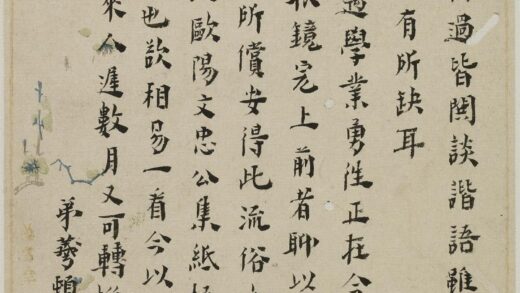 過皆閩談諧語雖
有所缺耳
過學業勇徃正在今
鏡完上前者聊以
所償安得此流俗
歐陽文忠公集紙
也欲相易一看今以
來人遲數月又可轉
弟頓